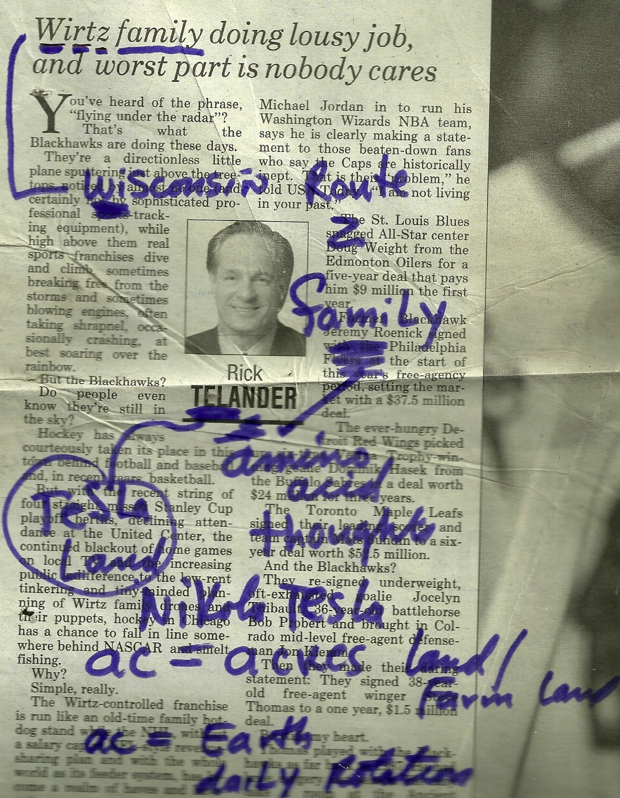 Wirtz family doing lousy job,
and worst part is nobody cares
You've heard of the phrase,
"flying under the radar"?
That's what the
Blackhawks are doing these days.
They're a directionless little
plane sputtering just above the tree-
certainly by sophisticated pro-
fessional -track-
ing equipment), while
high above them real
sports franchises dive
and climb, sometimes
breaking free from the
storms and sometimes
blowing engines, often
taking shrapnel, occa-
sionally crashing, at
best soaring over the
rainbow.
But the Blackhawks?
Do people even
know they're still in
the sky?
Hockey has always
courteously taken its place in this
town behind football and baseball
and, in recent years, basketball.
But with the recent string of
four straight missed Stanley Cup
playoff berths, declining atten-
dance at the United Center, the
continued blackout of home games
on local the increasing
public indifference to the low-rent
tinkering and tiny-minded plan-
ning of Wirtz family drones and
their puppets, hockey in Chicago
has a chance to fall in line some-
where behind NASCAR and smelt
fishing.
Why?
Simple, really.
The Wirtz-controlled franchise
is run like an old-time family hot-
dog stand
a salary cap
sharing plan and with the whole
world as its feeder system, has
come a realm of haves and
Rick
TELANDER
Michael Jordan in to run his
Washington Wizards NBA team,
says he is clearly making a state-
ment to those beaten-down fans
who say the Caps are historically
inept. "That is their problem," he
told "I am not living
in your past."
The St. Louis Blues
snagged All-Star center
Doug Weight from the
Edmonton Oilers for a
five-year deal that pays
him $9 million the first
year.
Former Blackhawk
Jeremy Roenick signed
with the Philadelphia
Flyers at the start of
this year's free-agency
period, setting the mar-
ket with a $37.5 million
deal.
The ever-hungry De-
troit Red Wings picked
Trophy-win-
Dominik Hasek from
the Buffalo Sabres a deal worth
$24 million for years.
The Toronto Maple Leafs
signed leading scorer and
team captain Mats Sundin a six-
year deal worth million.
And the Blackhawks?
They re-signed underweight,
oft-exhausted goalie Jocelyn
Thibault, 36-year-old battlehorse
Bob Probert and brought in Col-
orado mid-level free-agent defense-
man Jon Klemm.
Then they made their
statement: They signed 38-year-
old free-agent winger
Thomas to a one year, $1.5 million
deal.
my heart.
Wisconsin Route
2
family
amino
acid
thoughts
Tesla
Land
Nikola Tesla
ac = acres land/
Farm Land
ac = Earth
daily Rotation